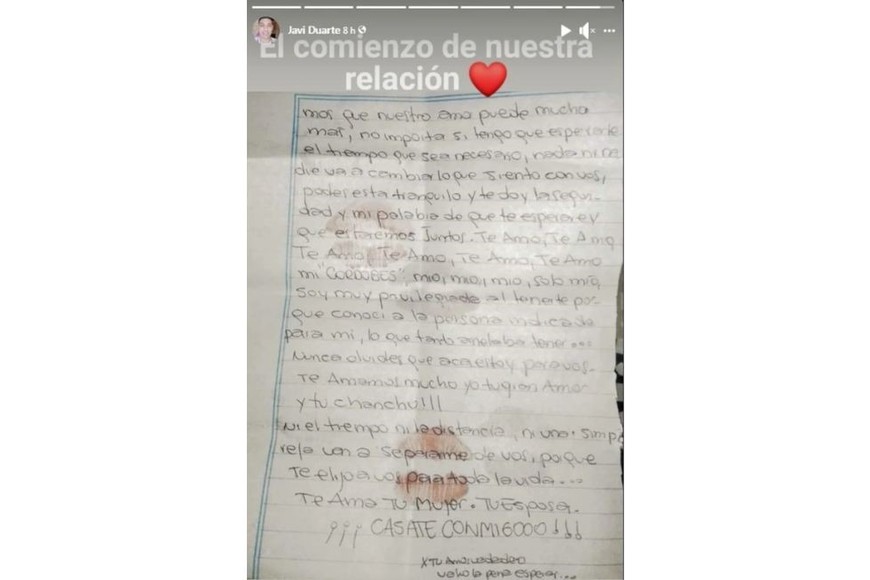 Javi Duarte 8 h
El comienzo de nuestra
relación ❤️
mos que nuestro amo puede mucha
mas, no importa si tengo que esperarte
el tiempo que sea necesario, nada ni na
die va a cambiar lo que siento con vos,
podes esta tranquilo y te doy la seguri
dad y mi palabra de que te esperare y
que estaremos Juntos. Te Amo, Te Amo
Te Amo, Te Amo, Te Amo, Te Amo
mi "CORDOBES", mio, mio, mio, solo mio,
soy muy privilegiada al tenerte por
que conoci a la persona indicada
para mi, lo que tanto anelaba tener...
Nunca olvides que aca estoy para vos.
Te Amamos mucho yo tu gran Amor
y tu chanchu!!!
Ni el tiempo ni la distancia, ni una simple
reja van a separame de vos, poque
Te elijo a vos para toda la vida....
Te Ama TU Mujer. TU Esposa.
¡¡¡ CASATE CONMIGOOO!!!
x Tu Amor verdadero
vale la pena esperar...